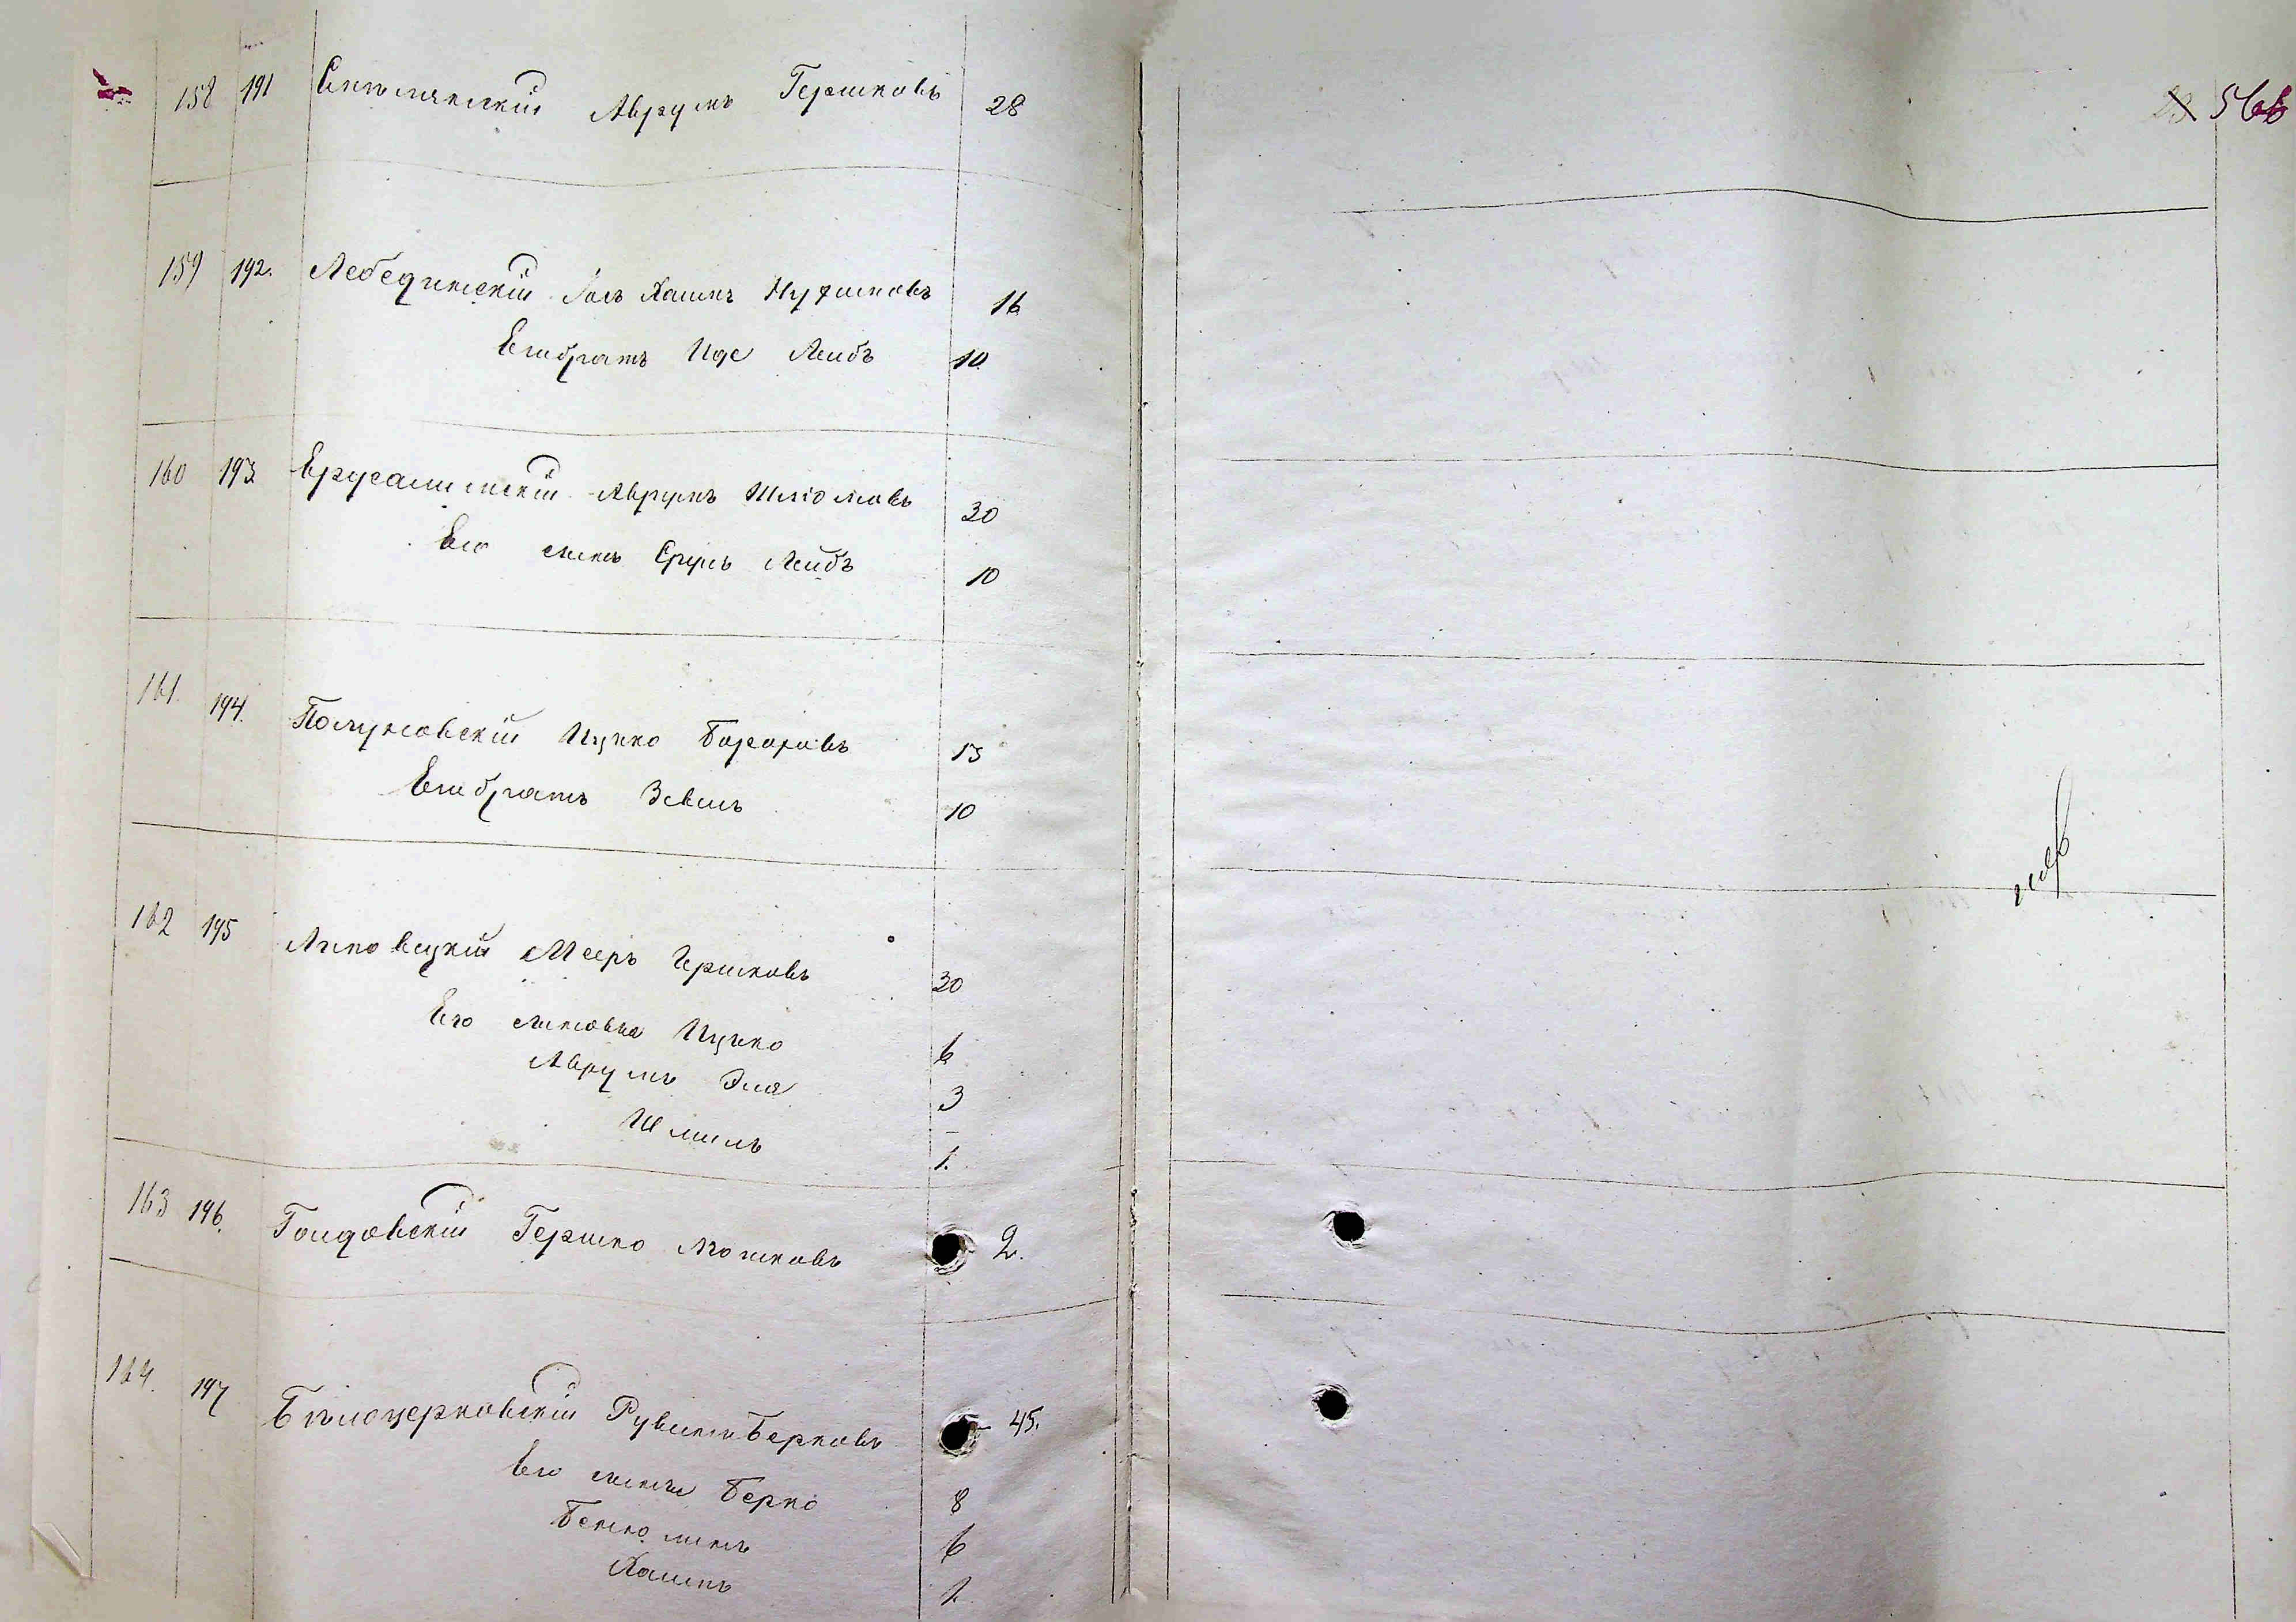 158 191 Смѣлянскій Аврумъ Гершковъ 28
159 192. Лебединскій Іось Хаимъ Нухимовъ 16
Его братъ Иде Лейбъ 10
160 193 Ерусалимскій Аврумъ Шліомовъ 30
Его сынъ Сруль Лейбъ 10
161. 194. Полуновскій Ицко Бороховъ 13
Его братъ Зевель 10
162 195 Липовецкій Мееръ Гершковъ 30
Его сыновья Ицко 6
Аврумъ Эля 3
Шмиль 1.
163 196. Гойдовскій Гершко Мошковъ 2.
164. 197 Бѣлоцерковскій Рувинъ Берковъ 45.
Его сыны Берко 8
Беньоминъ 6
Хаимъ 1.